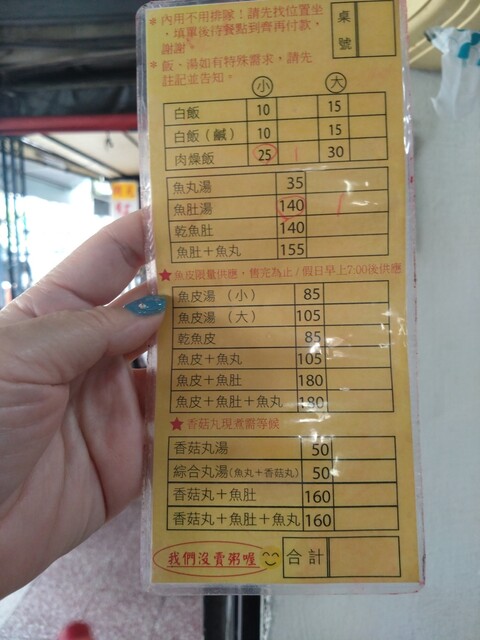 * 內用不用排隊！請先找位置坐
，填單後待餐點到齊再付款，
謝謝。
* 飯、湯如有特殊需求，請先
註記並告知。
桌號
小 大
白飯 10 15
白飯（鹹） 10 15
肉燥飯 25 1 30
魚丸湯 35
魚肚湯 140 1
乾魚肚 140
魚肚＋魚丸 155
★魚皮限量供應，售完為止/假日早上7:00後供應
魚皮湯（小） 85
魚皮湯（大） 105
乾魚皮 85
魚皮＋魚丸 105
魚皮＋魚肚 180
魚皮＋魚肚＋魚丸 180
★香菇丸現煮需等候
香菇丸湯 50
綜合丸湯(魚丸＋香菇丸) 50
香菇丸＋魚肚 160
香菇丸＋魚肚＋魚丸 160
我們沒賣粥喔 合計